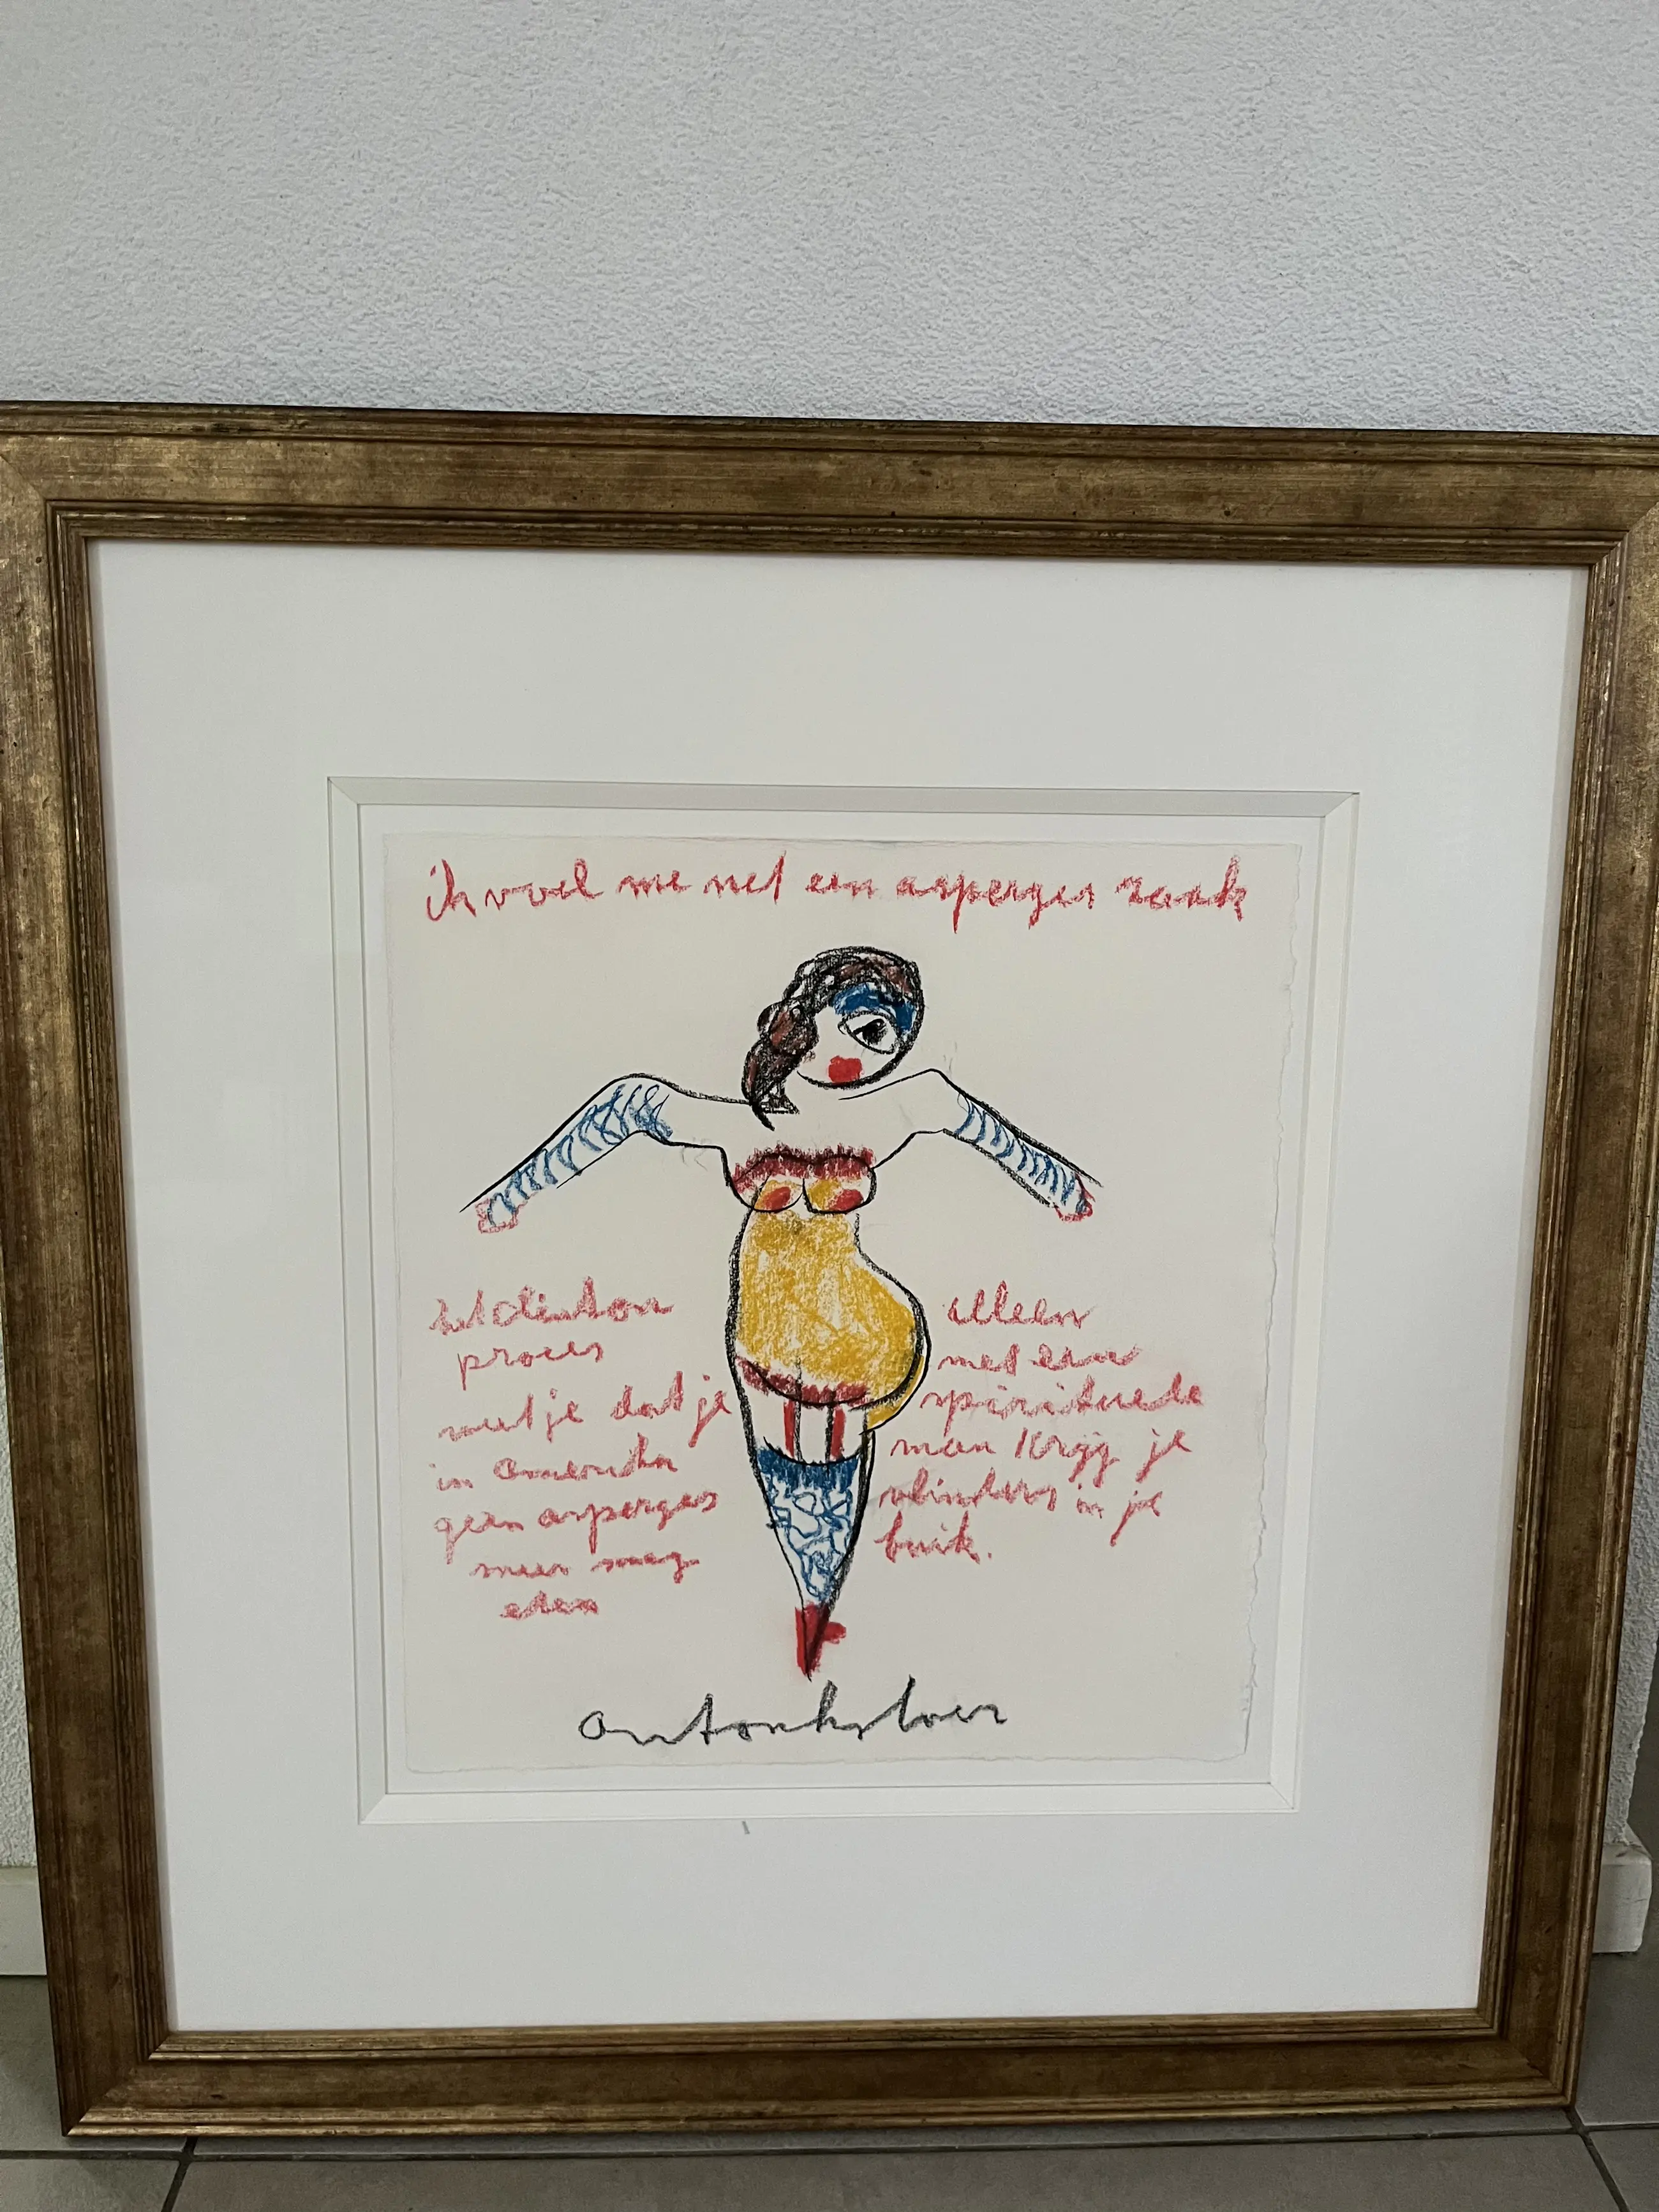 ik voel me net een asperges zaak
het clinton
proces
weet je dat je
in amerika
geen asperges
meer mag
eten
alleen
met een
spirituele
man krijg je
vlinders in je
buik.
antonheyboer